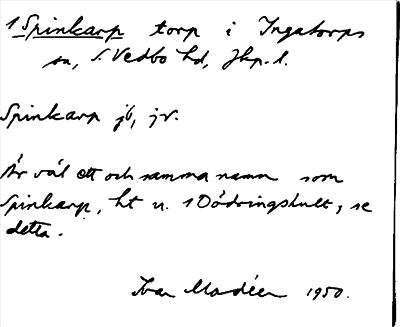 1 Spinkarp torp i Ingatorps
sn, S. Vedbo hd, Jkp. l.
Spinkarp jb, jr.
Är väl ett och samma namn som
Spinkarp, ht u. 1 Dödringshult, se
detta.
Ivar Modéer 1950.